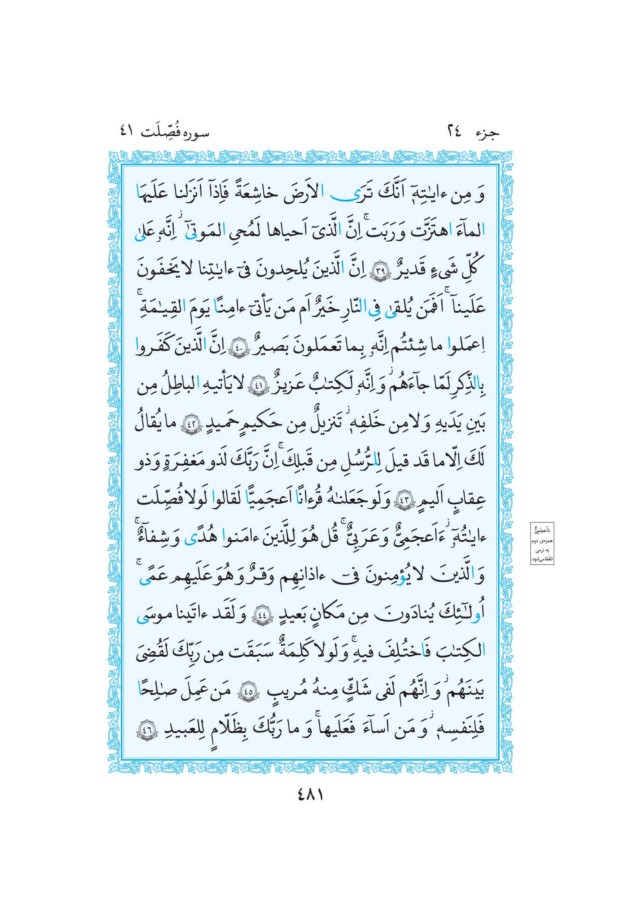 جزء ٢٤
سوره فُصِّلَت ٤١
وَ مِن ءايـٰتِهِۦٓ اَنَّكَ تَرَى الاَرضَ خاشِعَةً فَاِذآ اَنزَلنا عَلَيهَا
المآءَ اهتَزَّت وَ رَبَت ۚ اِنَّ الَّذىٓ اَحياها لَمُحىِ المَوتىٰٓ ۚ اِنَّهُۥ عَلىٰ
كُلِّ شَىءٍ قَديرٌ ﴿٣٩﴾ اِنَّ الَّذينَ يُلحِدونَ فىٓ ءايـٰتِنا لا يَخفَونَ
عَلَينآ ۗ اَفَمَن يُلقىٰ فِى النّارِ خَيرٌ اَم مَن يَأتىٓ ءامِنًا يَومَ القِيـٰمَةِ ۚ
اِعمَلوا ما شِئتُم اِنَّهُۥ بِما تَعمَلونَ بَصيرٌ ﴿٤٠﴾ اِنَّ الَّذينَ كَفَروا
بِالذِّكرِ لَمّا جآءَهُم ۖ وَ اِنَّهُۥ لَكِتـٰبٌ عَزيزٌ ﴿٤١﴾ لا يَأتيهِ الباطِلُ مِن
بَينِ يَدَيهِ وَ لا مِن خَلفِهِۦ ۖ تَنزيلٌ مِن حَكيمٍ حَميدٍ ﴿٤٢﴾ ما يُقالُ
لَكَ اِلّا ما قَد قيلَ لِلرُّسُلِ مِن قَبلِكَ ۚ اِنَّ رَبَّكَ لَذو مَغفِرَةٍ وَ ذو
عِقابٍ اَليمٍ ﴿٤٣﴾ وَ لَو جَعَلنـٰهُ قُرءانًا اَعجَمِيًّا لَقالوا لَولا فُصِّلَت
ءايـٰتُهُۥٓ ۖ ءَاَعجَمِىٌّ وَ عَرَبِىٌّ ۗ قُل هُوَ لِلَّذينَ ءامَنوا هُدًى وَ شِفآءٌ ۖ
وَ الَّذينَ لا يُؤمِنونَ فىٓ ءاذانِهِم وَقرٌ وَ هُوَ عَلَيهِم عَمًى ۚ
اُولـٰٓئِكَ يُنادَونَ مِن مَكانٍ بَعيدٍ ﴿٤٤﴾ وَ لَقَد ءاتَينا موسَى
الكِتـٰبَ فَاختُلِفَ فيهِ ۗ وَ لَولا كَلِمَةٌ سَبَقَت مِن رَبِّكَ لَقُضِىَ
بَينَهُم ۚ وَ اِنَّهُم لَفى شَكٍّ مِنهُ مُريبٍ ﴿٤٥﴾ مَن عَمِلَ صـٰلِحًا
فَلِنَفسِهِۦ ۖ وَ مَن اَسآءَ فَعَلَيها ۗ وَ ما رَبُّكَ بِظَلّامٍ لِلعَبيدِ ﴿٤٦﴾
همزه‌ی دوم
به نرمی
تلفظ می‌شود.
٤٨١